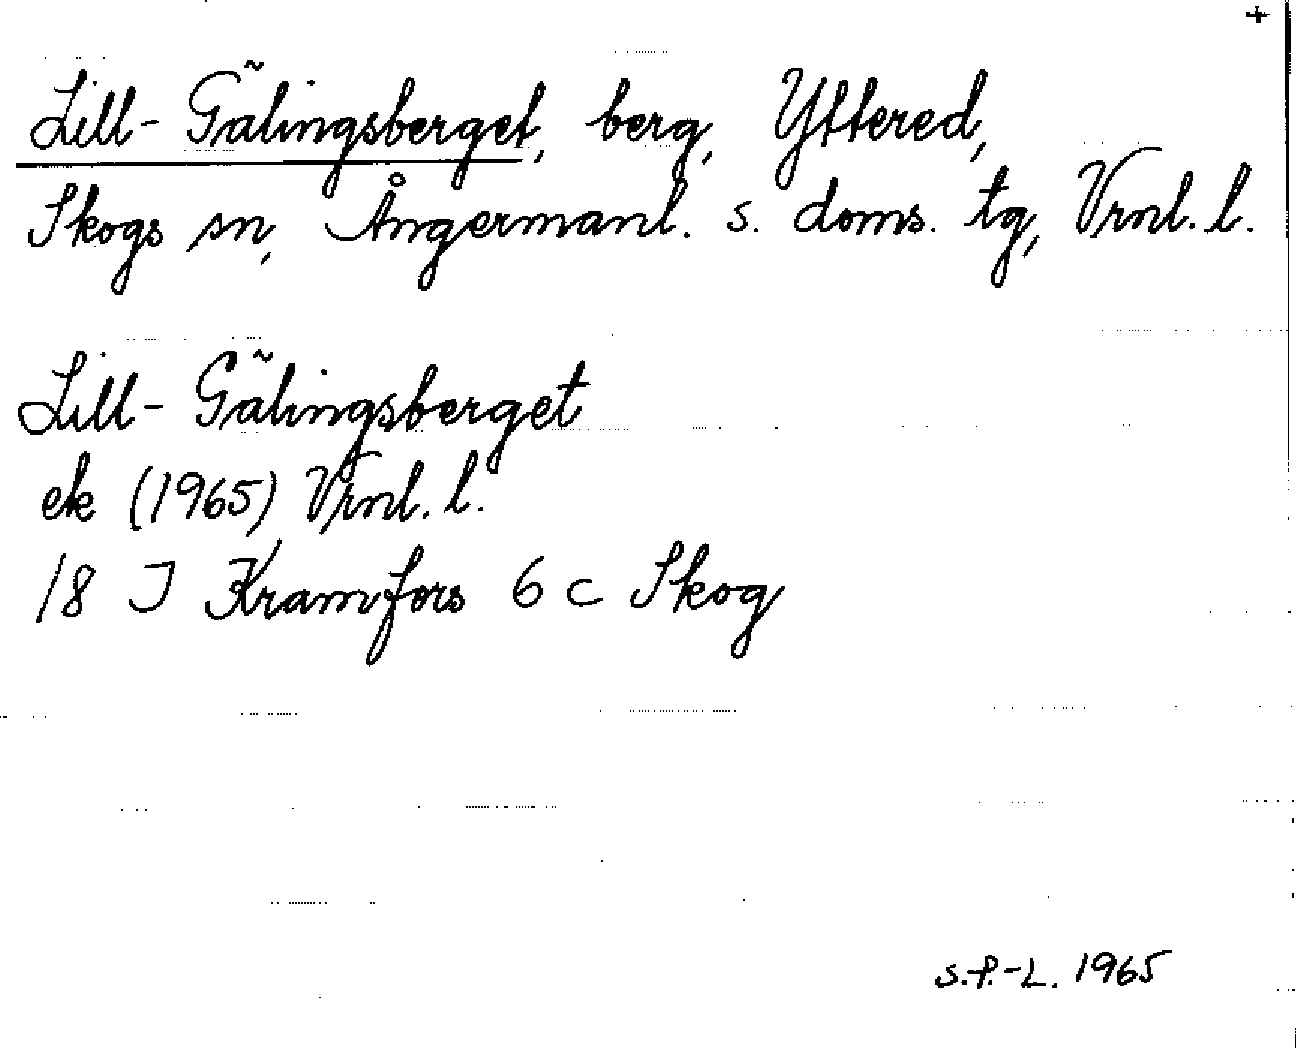 +
Lill-Gälingsberget, berg, Yttered,
Skogs sn, Ångermanl. s. doms. tg, Vrnl. l.
Lill-Gälingsberget
ek (1965) Vrnl. l.
18 J Kramfors 6 c Skog
S.P.-L. 1965